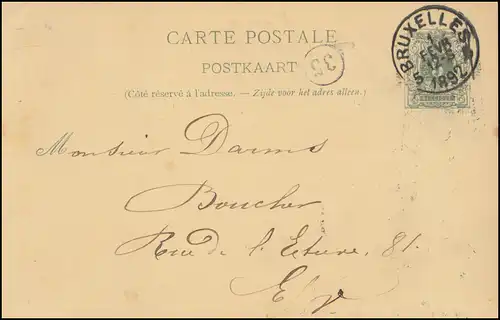 CARTE POSTALE
POSTKAART
35
(Côté réservé à l'adresse. — Zijde voor het adres alleen.)
BRUXELLES 5
1
FEVR
1892
Monsieur Darms
Boucher
Rue de l'Ecture, 81.